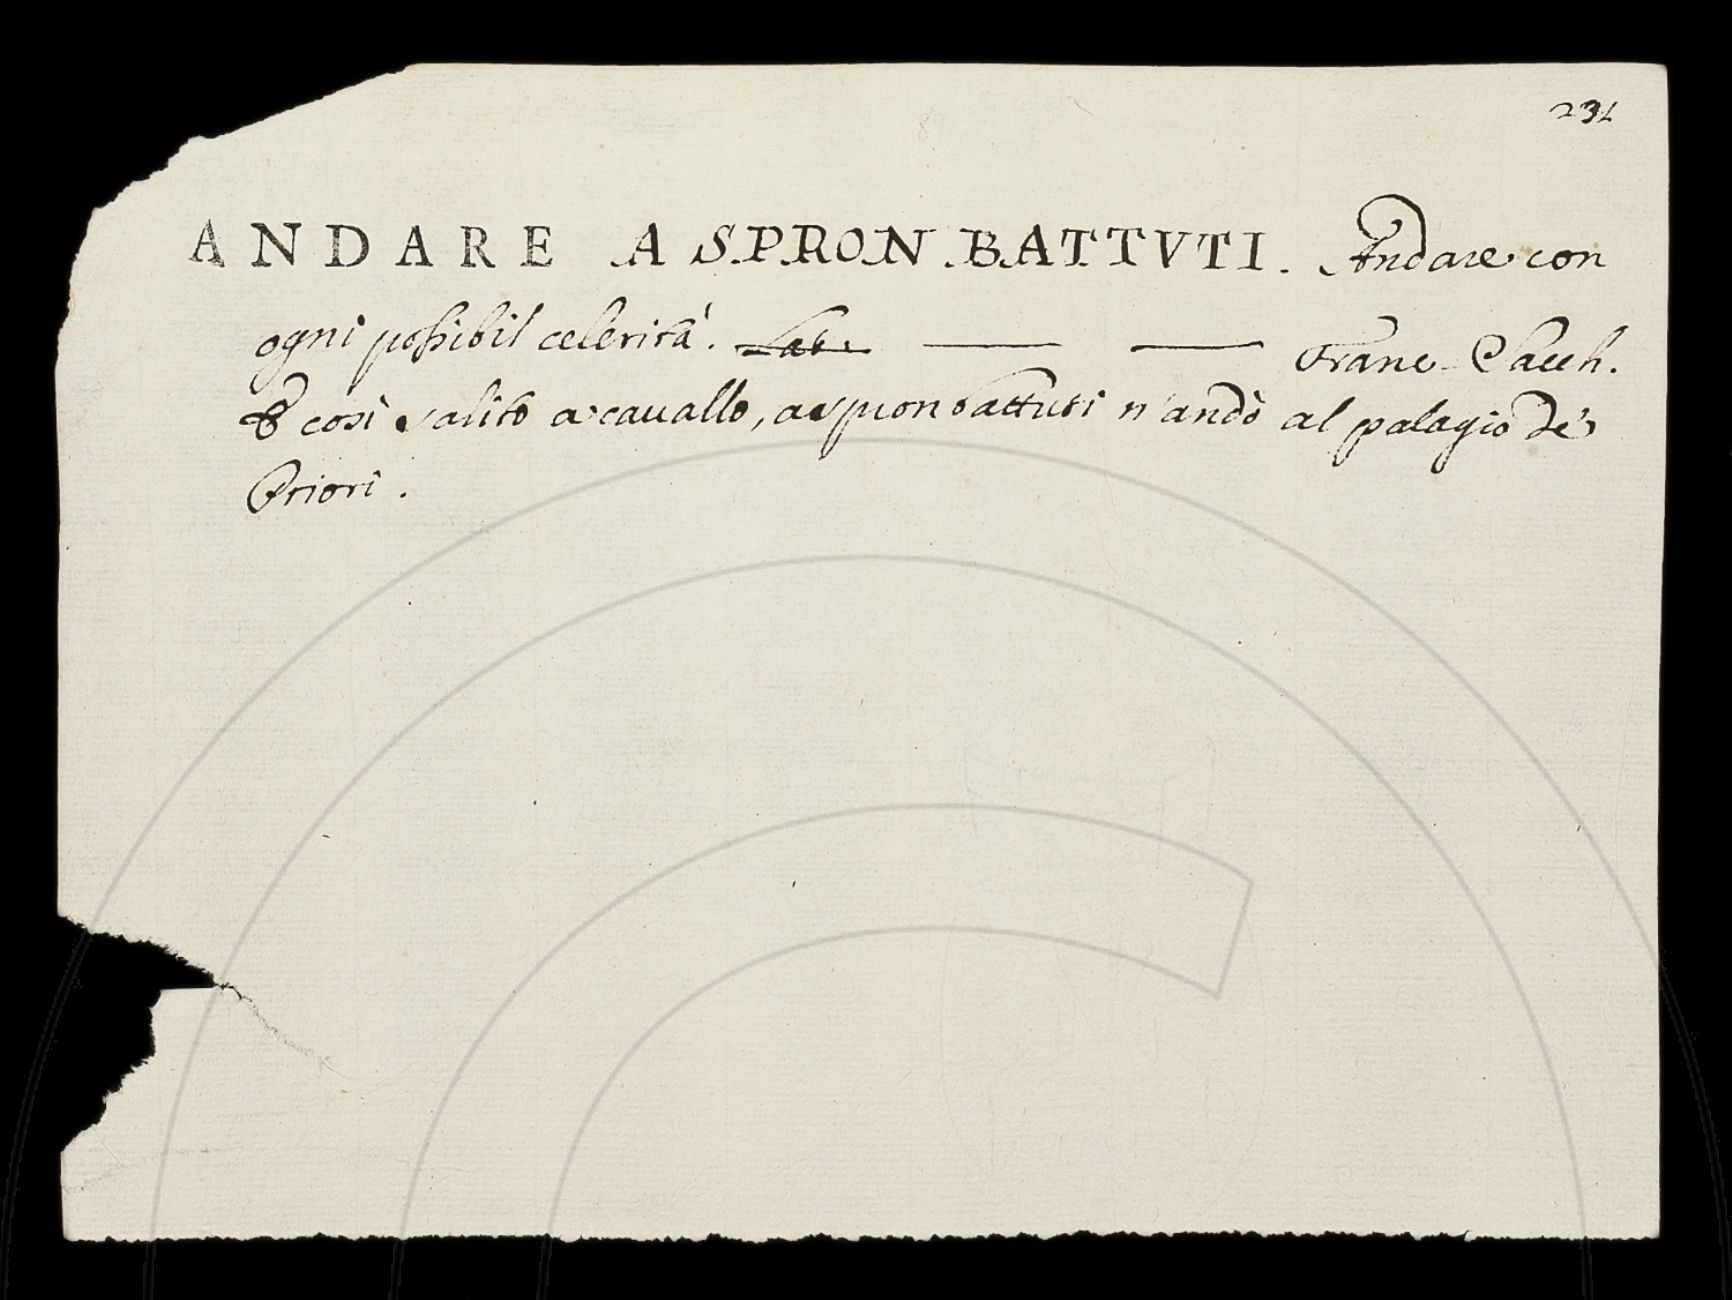 231
ANDARE A SPRON BATTVTI. Andare con
ogni possibil celerità. Lat. Franc. Sacch.
E così salito a cauallo, a spron battuti n'andò al palagio de'
Priori.